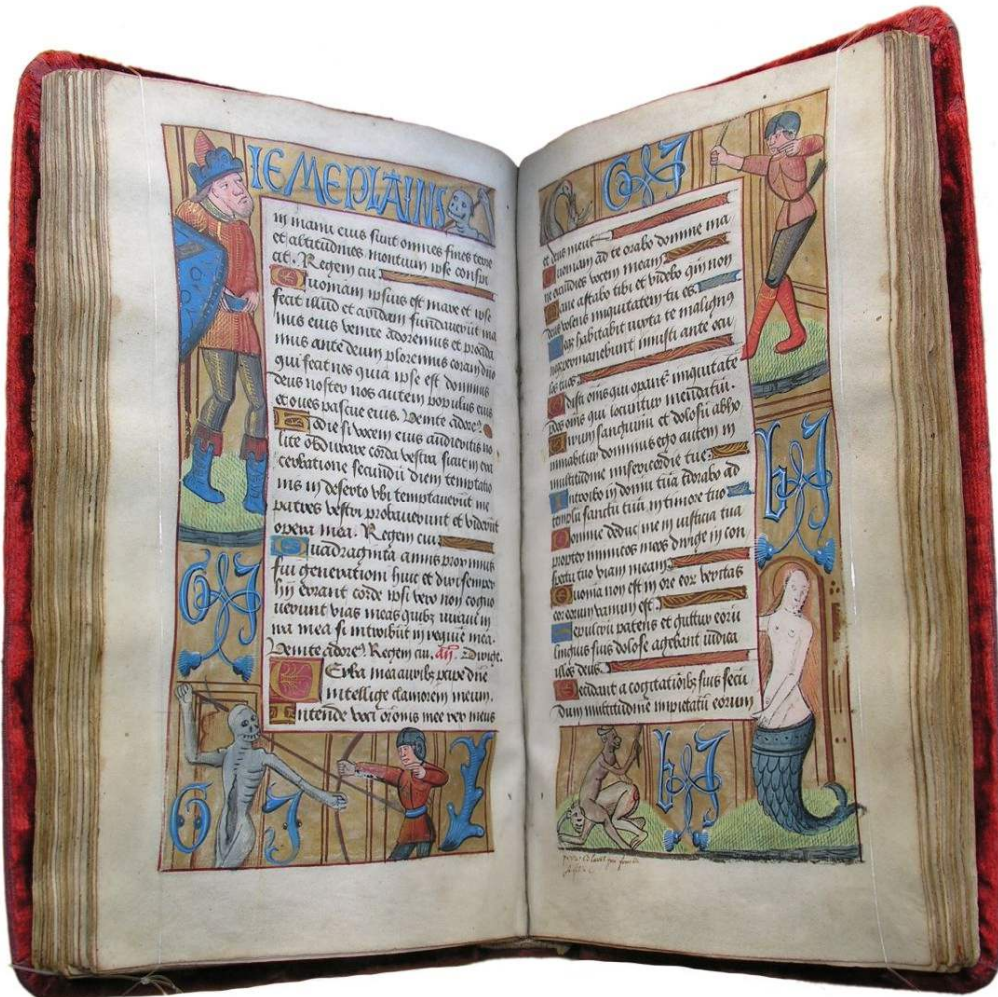 IEMEPLAINS
in manu eius sunt omnes fines terre
et altitudines montium ipse conspi
cit. Regem cui
Quoniam ipsius est mare et ipse
fecit illud et aridam fundaverunt ma
nus eius venite adoremus et procida
mus ante deum ploremus coram dño
qui fecit nos quia ipse est dominus
deus noster nos autem populus eius
et oves pascue eius. Venite adore
Hodie si vocem eius audieritis no
lite obdurare corda vestra sicut in exa
cerbatione secundũ diem temptatio
nis in deserto ubi temptaverũt me
patres vestri probaverunt et viderũt
opera mea. Regem cui
Quadraginta annis proximus
fui generationi huic et dixi semper
hii errant corde ipsi vero non cogno
verunt vias meas quibꝫ iuravi in
ira mea si introibũt in requiẽ mea.
Venite adore Regem cui. añ. Dirige.
Verba mea auribꝫ percipe dñe
intellige clamorem meum.
Intende voci oronis mee rex meus
G J
G J
G J
et deus meus
Quoniam ad te orabo domine ma
ne exaudies vocem meam
Mane astabo tibi et videbo qm̃ non
deus volens iniquitatem tu es
Neqꝫ habitabit iuxta te malignꝰ
neqꝫ permanebunt iniusti ante ocu
los tuos
Odisti om̃s qui operant̃ iniquitatẽ
pdes om̃s qui locuntur mendaciũ.
Virum sanguinũ et dolosũ abho
minabitur dominus ego autem in
multitudine misericordie tue
Introibo in domũ tuã adorabo ad
templũ sanctũ tuũ in timore tuo
Domine deduc me in iusticia tua
propter inimicos meos dirige in con
spectu tuo viam meam
Quoniã non est in ore eorũ veritas
cor eorum vanum est
Sepulcrũ patens est guttur eorũ
linguis suis dolose agebant iudica
illos deus
Decidant a cogitationibꝫ suis secũ
dum multitudinẽ impietatũ eorum
h J
h J